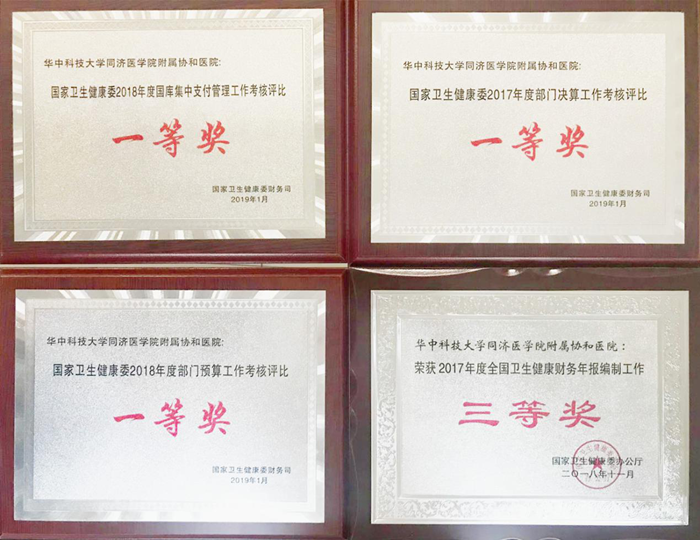 华中科技大学同济医学院附属协和医院:
国家卫生健康委2018年度国库集中支付管理工作考核评比
一等奖
国家卫生健康委财务司
2019年1月
华中科技大学同济医学院附属协和医院:
国家卫生健康委2017年度部门决算工作考核评比
一等奖
国家卫生健康委财务司
2019年1月
华中科技大学同济医学院附属协和医院:
国家卫生健康委2018年度部门预算工作考核评比
一等奖
国家卫生健康委财务司
2019年1月
华中科技大学同济医学院附属协和医院：
荣获2017年度全国卫生健康财务年报编制工作
三等奖
国家卫生健康委办公厅
二〇一八年十一月